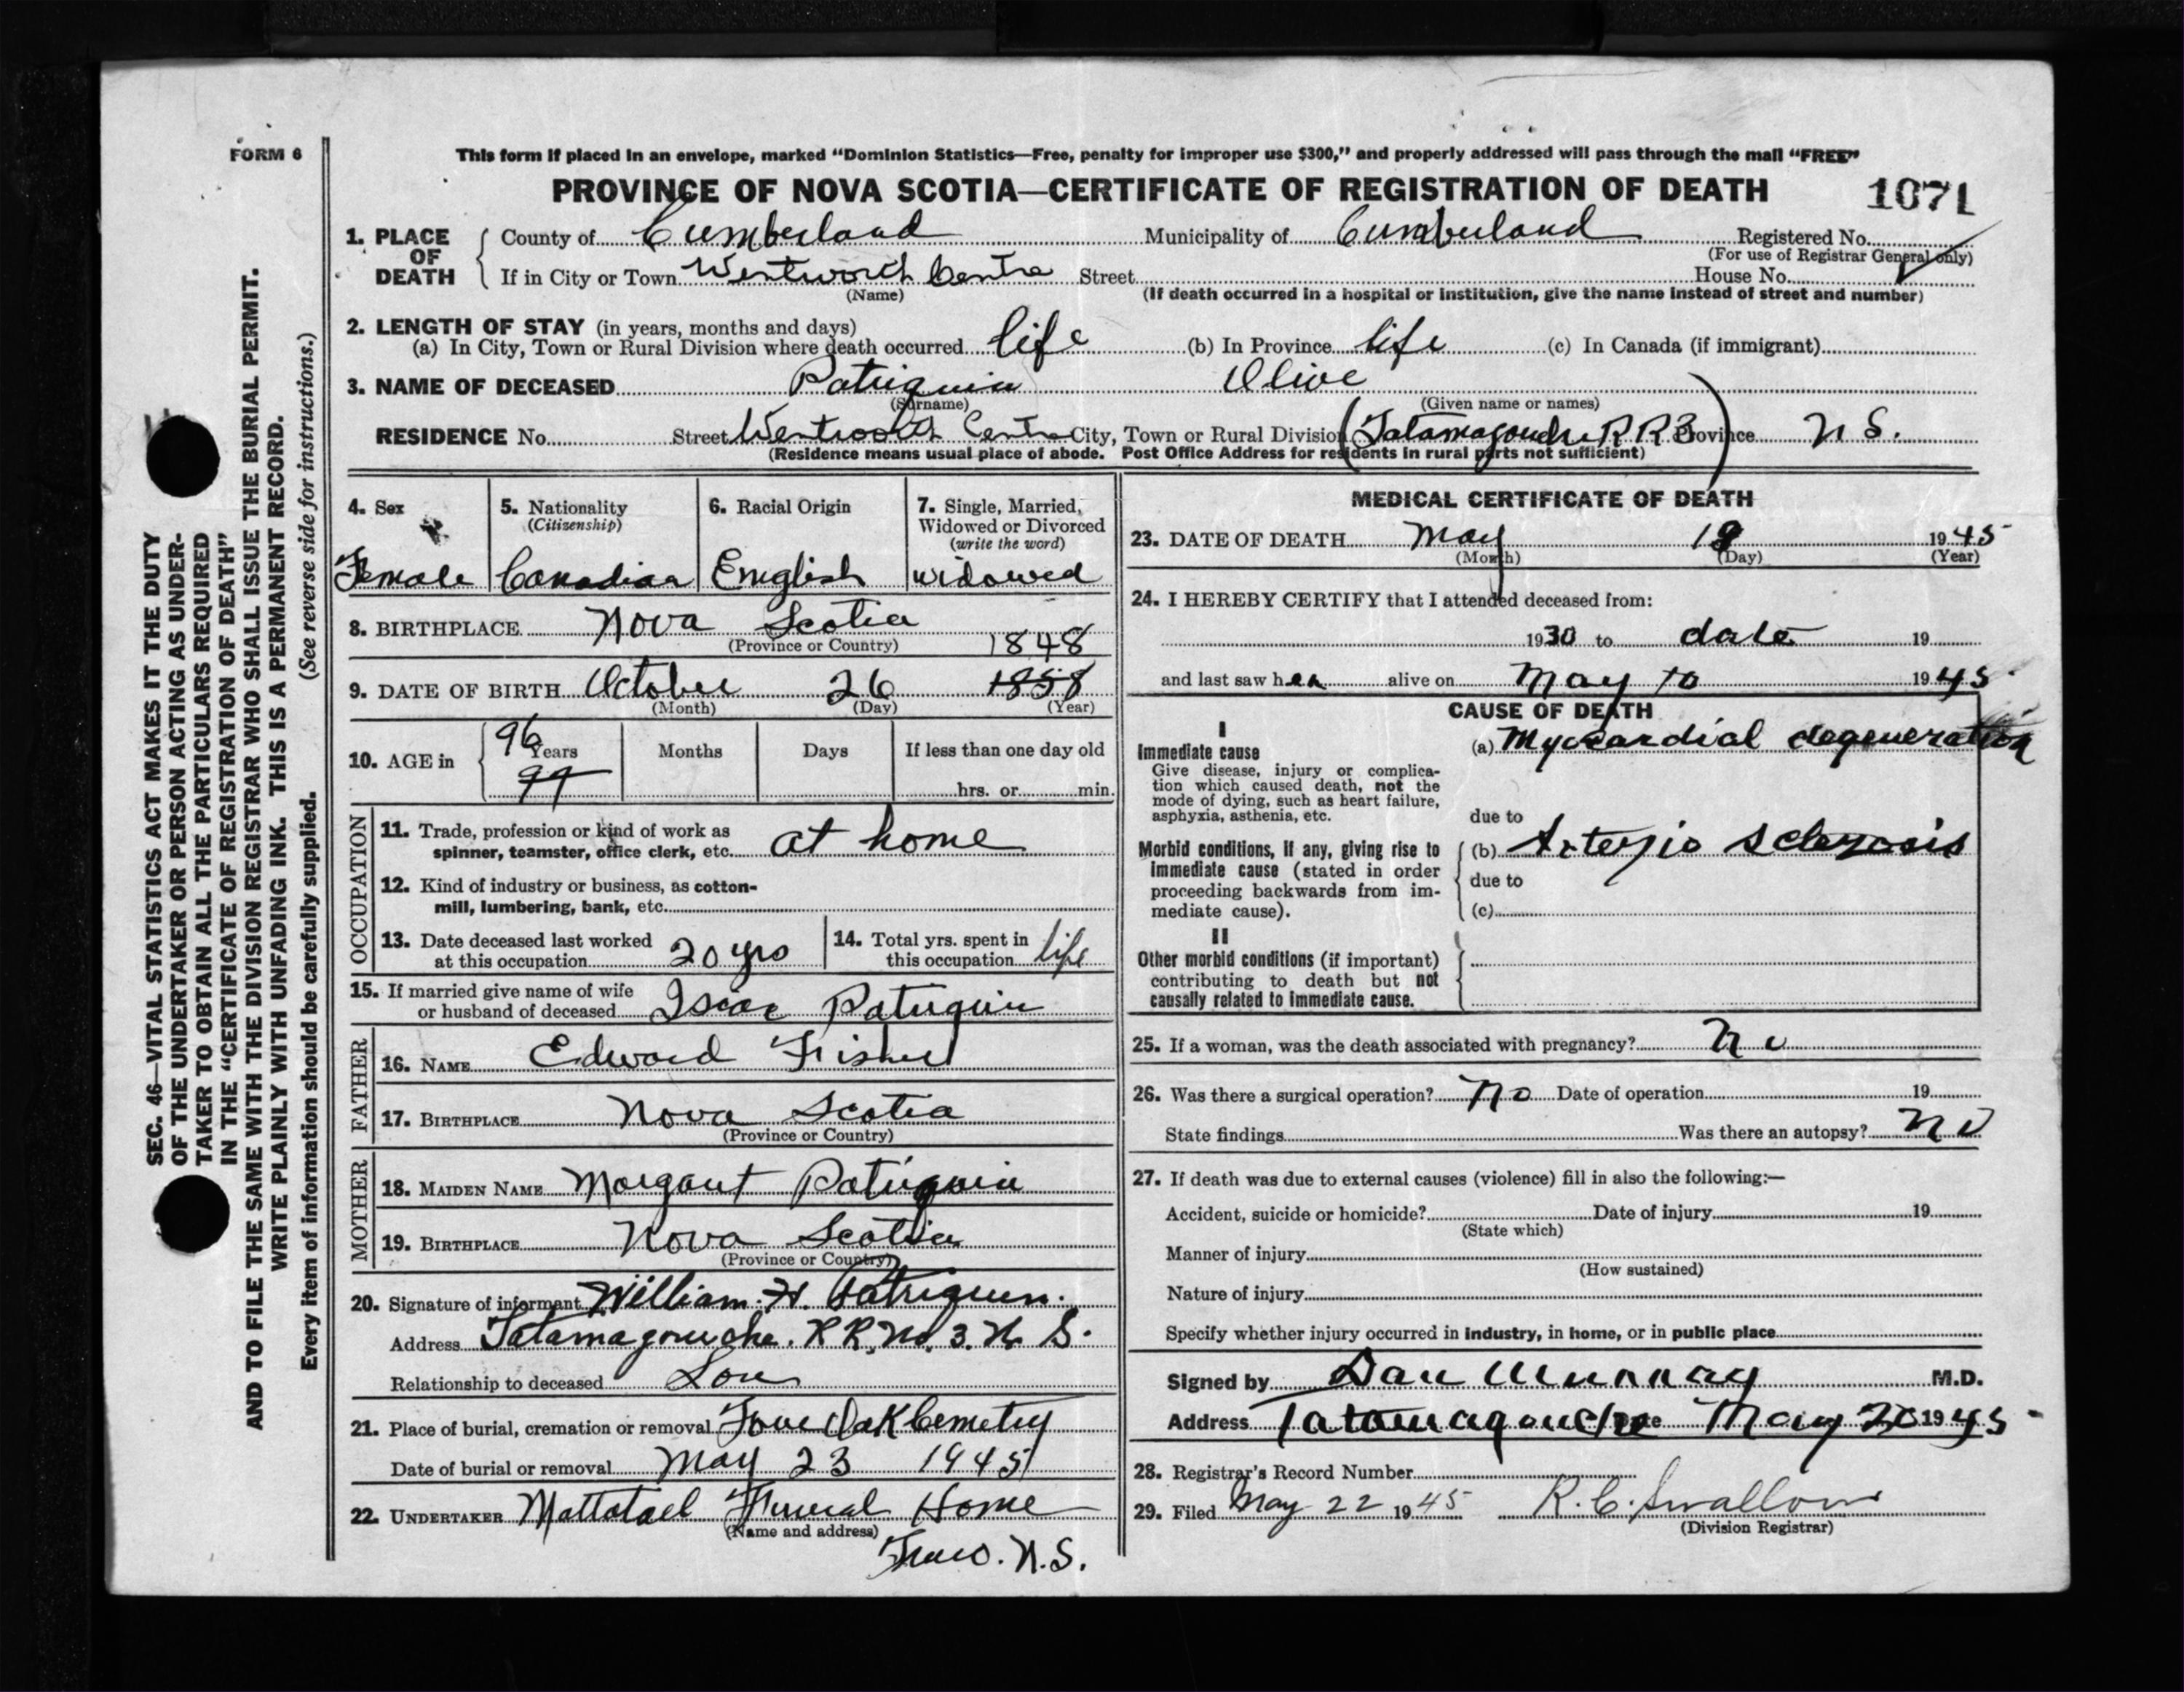 FORM 6
This form if placed in an envelope, marked “Dominion Statistics—Free, penalty for improper use $300,” and properly addressed will pass through the mail “FREE”
PROVINCE OF NOVA SCOTIA—CERTIFICATE OF REGISTRATION OF DEATH 1071
SEC. 46—VITAL STATISTICS ACT MAKES IT THE DUTY
OF THE UNDERTAKER OR PERSON ACTING AS UNDER-
TAKER TO OBTAIN ALL THE PARTICULARS REQUIRED
IN THE “CERTIFICATE OF REGISTRATION OF DEATH”
AND TO FILE THE SAME WITH THE DIVISION REGISTRAR WHO SHALL ISSUE THE BURIAL PERMIT.
WRITE PLAINLY WITH UNFADING INK. THIS IS A PERMANENT RECORD.
Every item of information should be carefully supplied. (See reverse side for instructions.)
1. PLACE OF DEATH
County of Cumberland Municipality of Cumberland Registered No.
(For use of Registrar General only)
If in City or Town Wentworth Centre Street House No.
(Name) (If death occurred in a hospital or institution, give the name instead of street and number)
2. LENGTH OF STAY (in years, months and days)
(a) In City, Town or Rural Division where death occurred life (b) In Province life (c) In Canada (if immigrant)
3. NAME OF DECEASED Patriquin Olive
(Surname) (Given name or names)
RESIDENCE No. Street Wentworth Centre City, Town or Rural Division (Tatamagouche RR3) Province N S.
(Residence means usual place of abode. Post Office Address for residents in rural parts not sufficient)
4. Sex
Female
5. Nationality
(Citizenship)
Canadian
6. Racial Origin
English
7. Single, Married,
Widowed or Divorced
(write the word)
widowed
8. BIRTHPLACE Nova Scotia
(Province or Country) 1848
9. DATE OF BIRTH October 26 1858
(Month) (Day) (Year)
10. AGE in 96 Years Months Days If less than one day old
hrs. or min.
OCCUPATION
11. Trade, profession or kind of work as
spinner, teamster, office clerk, etc. at home
12. Kind of industry or business, as cotton-
mill, lumbering, bank, etc.
13. Date deceased last worked
at this occupation 20 yrs
14. Total yrs. spent in
this occupation life
15. If married give name of wife
or husband of deceased Isaac Patriquin
FATHER
16. NAME Edward Fisher
17. BIRTHPLACE Nova Scotia
(Province or Country)
MOTHER
18. MAIDEN NAME Margaret Patriquin
19. BIRTHPLACE Nova Scotia
(Province or Country)
20. Signature of informant William. H. Patriquin.
Address Tatamagouche. R R, No. 3. N S.
Relationship to deceased Son
21. Place of burial, cremation or removal Oak Cemetry
Date of burial or removal May 23 1945
22. UNDERTAKER Mattatall Funeral Home
(Name and address)
Truro. N.S.
MEDICAL CERTIFICATE OF DEATH
23. DATE OF DEATH May 1945
(Month) (Day) (Year)
24. I HEREBY CERTIFY that I attended deceased from:
1930 to date 19
and last saw her alive on May 10 1945
CAUSE OF DEATH
I
Immediate cause
Give disease, injury or complica-
tion which caused death, not the
mode of dying, such as heart failure,
asphyxia, asthenia, etc.
(a) Myocardial degeneration
due to
Morbid conditions, if any, giving rise to
immediate cause (stated in order
proceeding backwards from im-
mediate cause).
(b) Arterio sclerosis
due to
(c)
II
Other morbid conditions (if important)
contributing to death but not
causally related to immediate cause.
25. If a woman, was the death associated with pregnancy? No
26. Was there a surgical operation? No Date of operation 19
State findings Was there an autopsy? No
27. If death was due to external causes (violence) fill in also the following:—
Accident, suicide or homicide? Date of injury 19
(State which)
Manner of injury
(How sustained)
Nature of injury
Specify whether injury occurred in industry, in home, or in public place
Signed by Dan Murray M.D.
Address Tatamagouche Date May 20 1945
28. Registrar's Record Number
29. Filed May 22 1945 R. C. Swallow
(Division Registrar)